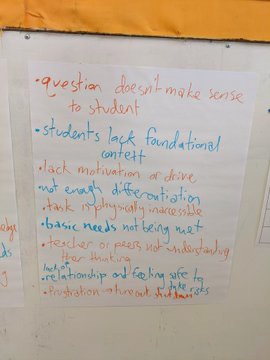 •question doesn't make sense
to student
•students lack foundational
context
•lack motivation or drive
•not enough differentiation
•task is physically inaccessible
•basic needs not being met
•teacher or peers not understanding
their thinking
lack of
•relationship and feeling safe to
take risks
•frustration → tune out shutdown